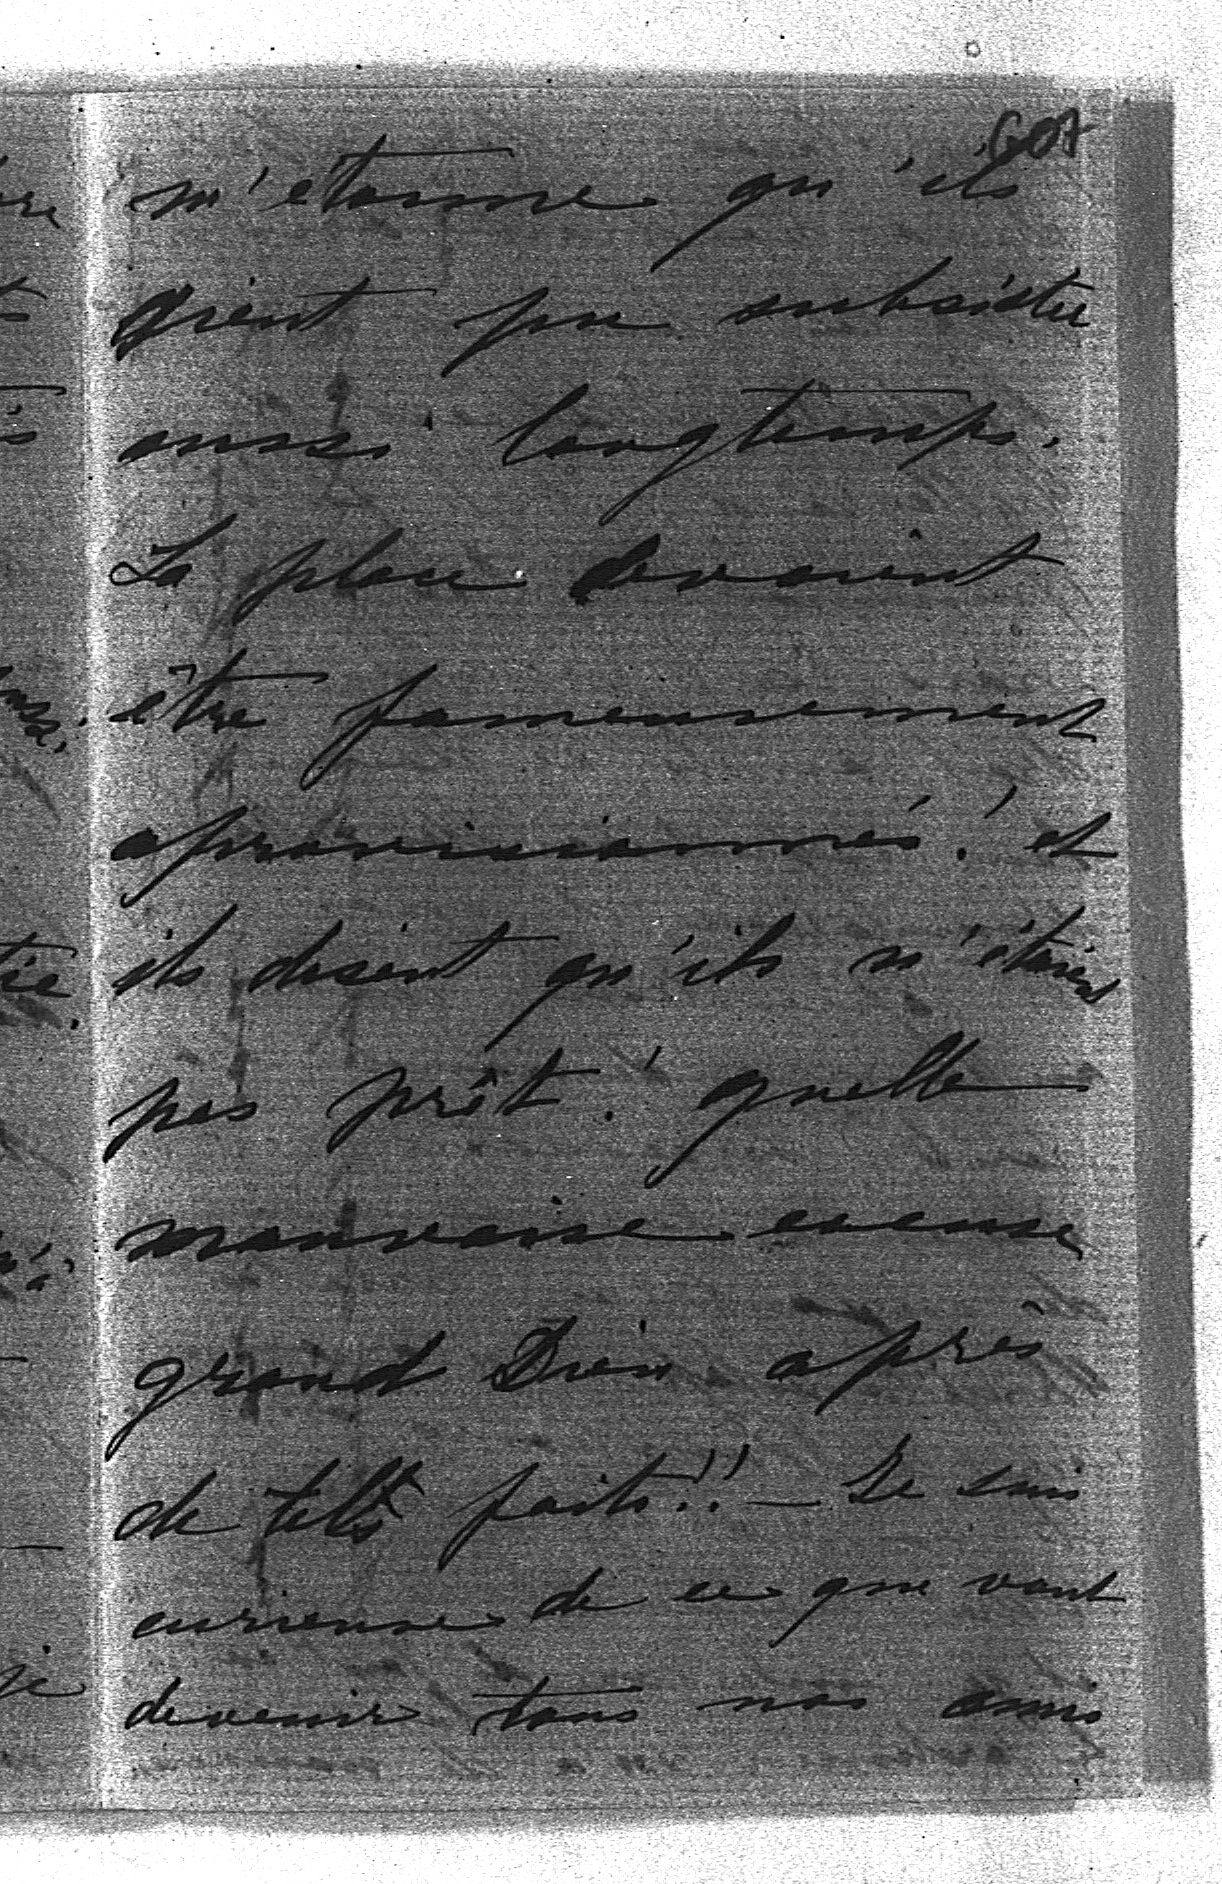 607
m'étonne qu'ils
aient pu subsister
aussi longtemps.
La place devaient
être fameusement
aprovisionnés! et
ils disent qu'ils n'étaient
pas prêt! quelle
mauvaise excuse
grand Dieu après
de tels faits!! — Je suis
curieuse de ce que vont
devenir tous nos amis